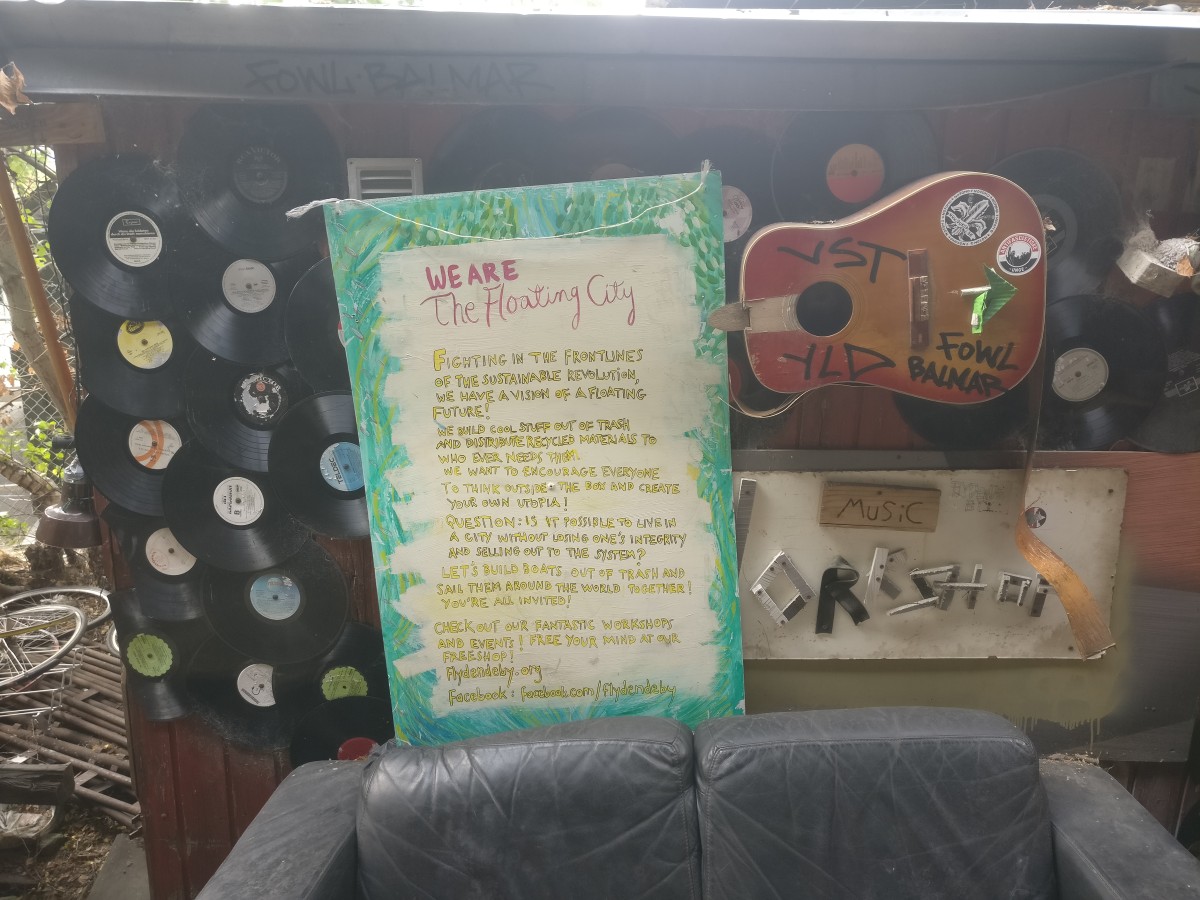 FOWL·BALMAR
WE ARE
The Floating City
FIGHTING IN THE FRONTLINES
OF THE SUSTAINABLE REVOLUTION,
WE HAVE A VISION OF A FLOATING
FUTURE!
WE BUILD COOL STUFF OUT OF TRASH
AND DISTRIBUTE RECYCLED MATERIALS TO
WHO EVER NEEDS THEM
WE WANT TO ENCOURAGE EVERYONE
TO THINK OUTSIDE THE BOX AND CREATE
YOUR OWN UTOPIA!
QUESTION: IS IT POSSIBLE TO LIVE IN
A CITY WITHOUT LOSING ONE'S INTEGRITY
AND SELLING OUT TO THE SYSTEM?
LET'S BUILD BOATS OUT OF TRASH AND
SAIL THEM AROUND THE WORLD TOGETHER!
YOU'RE ALL INVITED!
CHECK OUT OUR FANTASTIC WORKSHOPS
AND EVENTS! FREE YOUR MIND AT OUR
FREESHOP!
flydendeby.org
Facebook: facebook.com/flydendeby
VST
YLD
FOWL
BALMAR
MUSiC